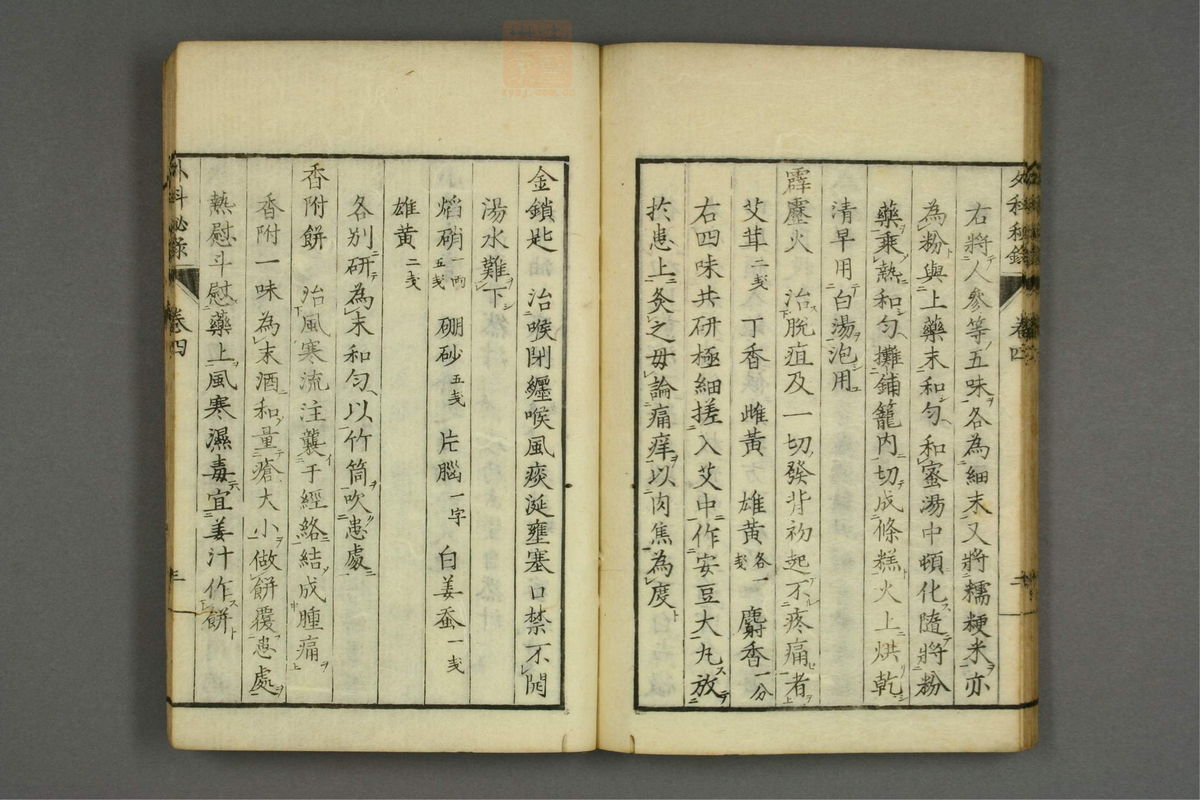 右將人參等五味各為細末又將糯粳米亦
為粉與上藥末和勻和蜜湯中頓化隨將粉
藥乘熱和勻攤鋪籠內切成條糕火上烘乾
清早用白湯泡用
霹靂火 治脫疽及一切發背初起不疼痛者
艾茸二戔 丁香 雌黃 雄黃各一戔 麝香一分
右四味共研極細搓入艾中作安豆大丸放
於患上灸之毋論痛痒以肉焦為度
金鎖匙 治喉閉纏喉風痰涎壅塞口禁不開
湯水難下
焰硝一兩五戔 硼砂五戔 片腦一字 白姜蚕一戔
雄黃二戔
各別研為末和勻以竹筒吹患處
香附餅 治風寒流注襲于經絡結成腫痛
香附一味為末酒和量瘡大小做餅覆患處
熱慰斗慰藥上風寒濕毒宜姜汁作餅
外科秘錄 卷四 三